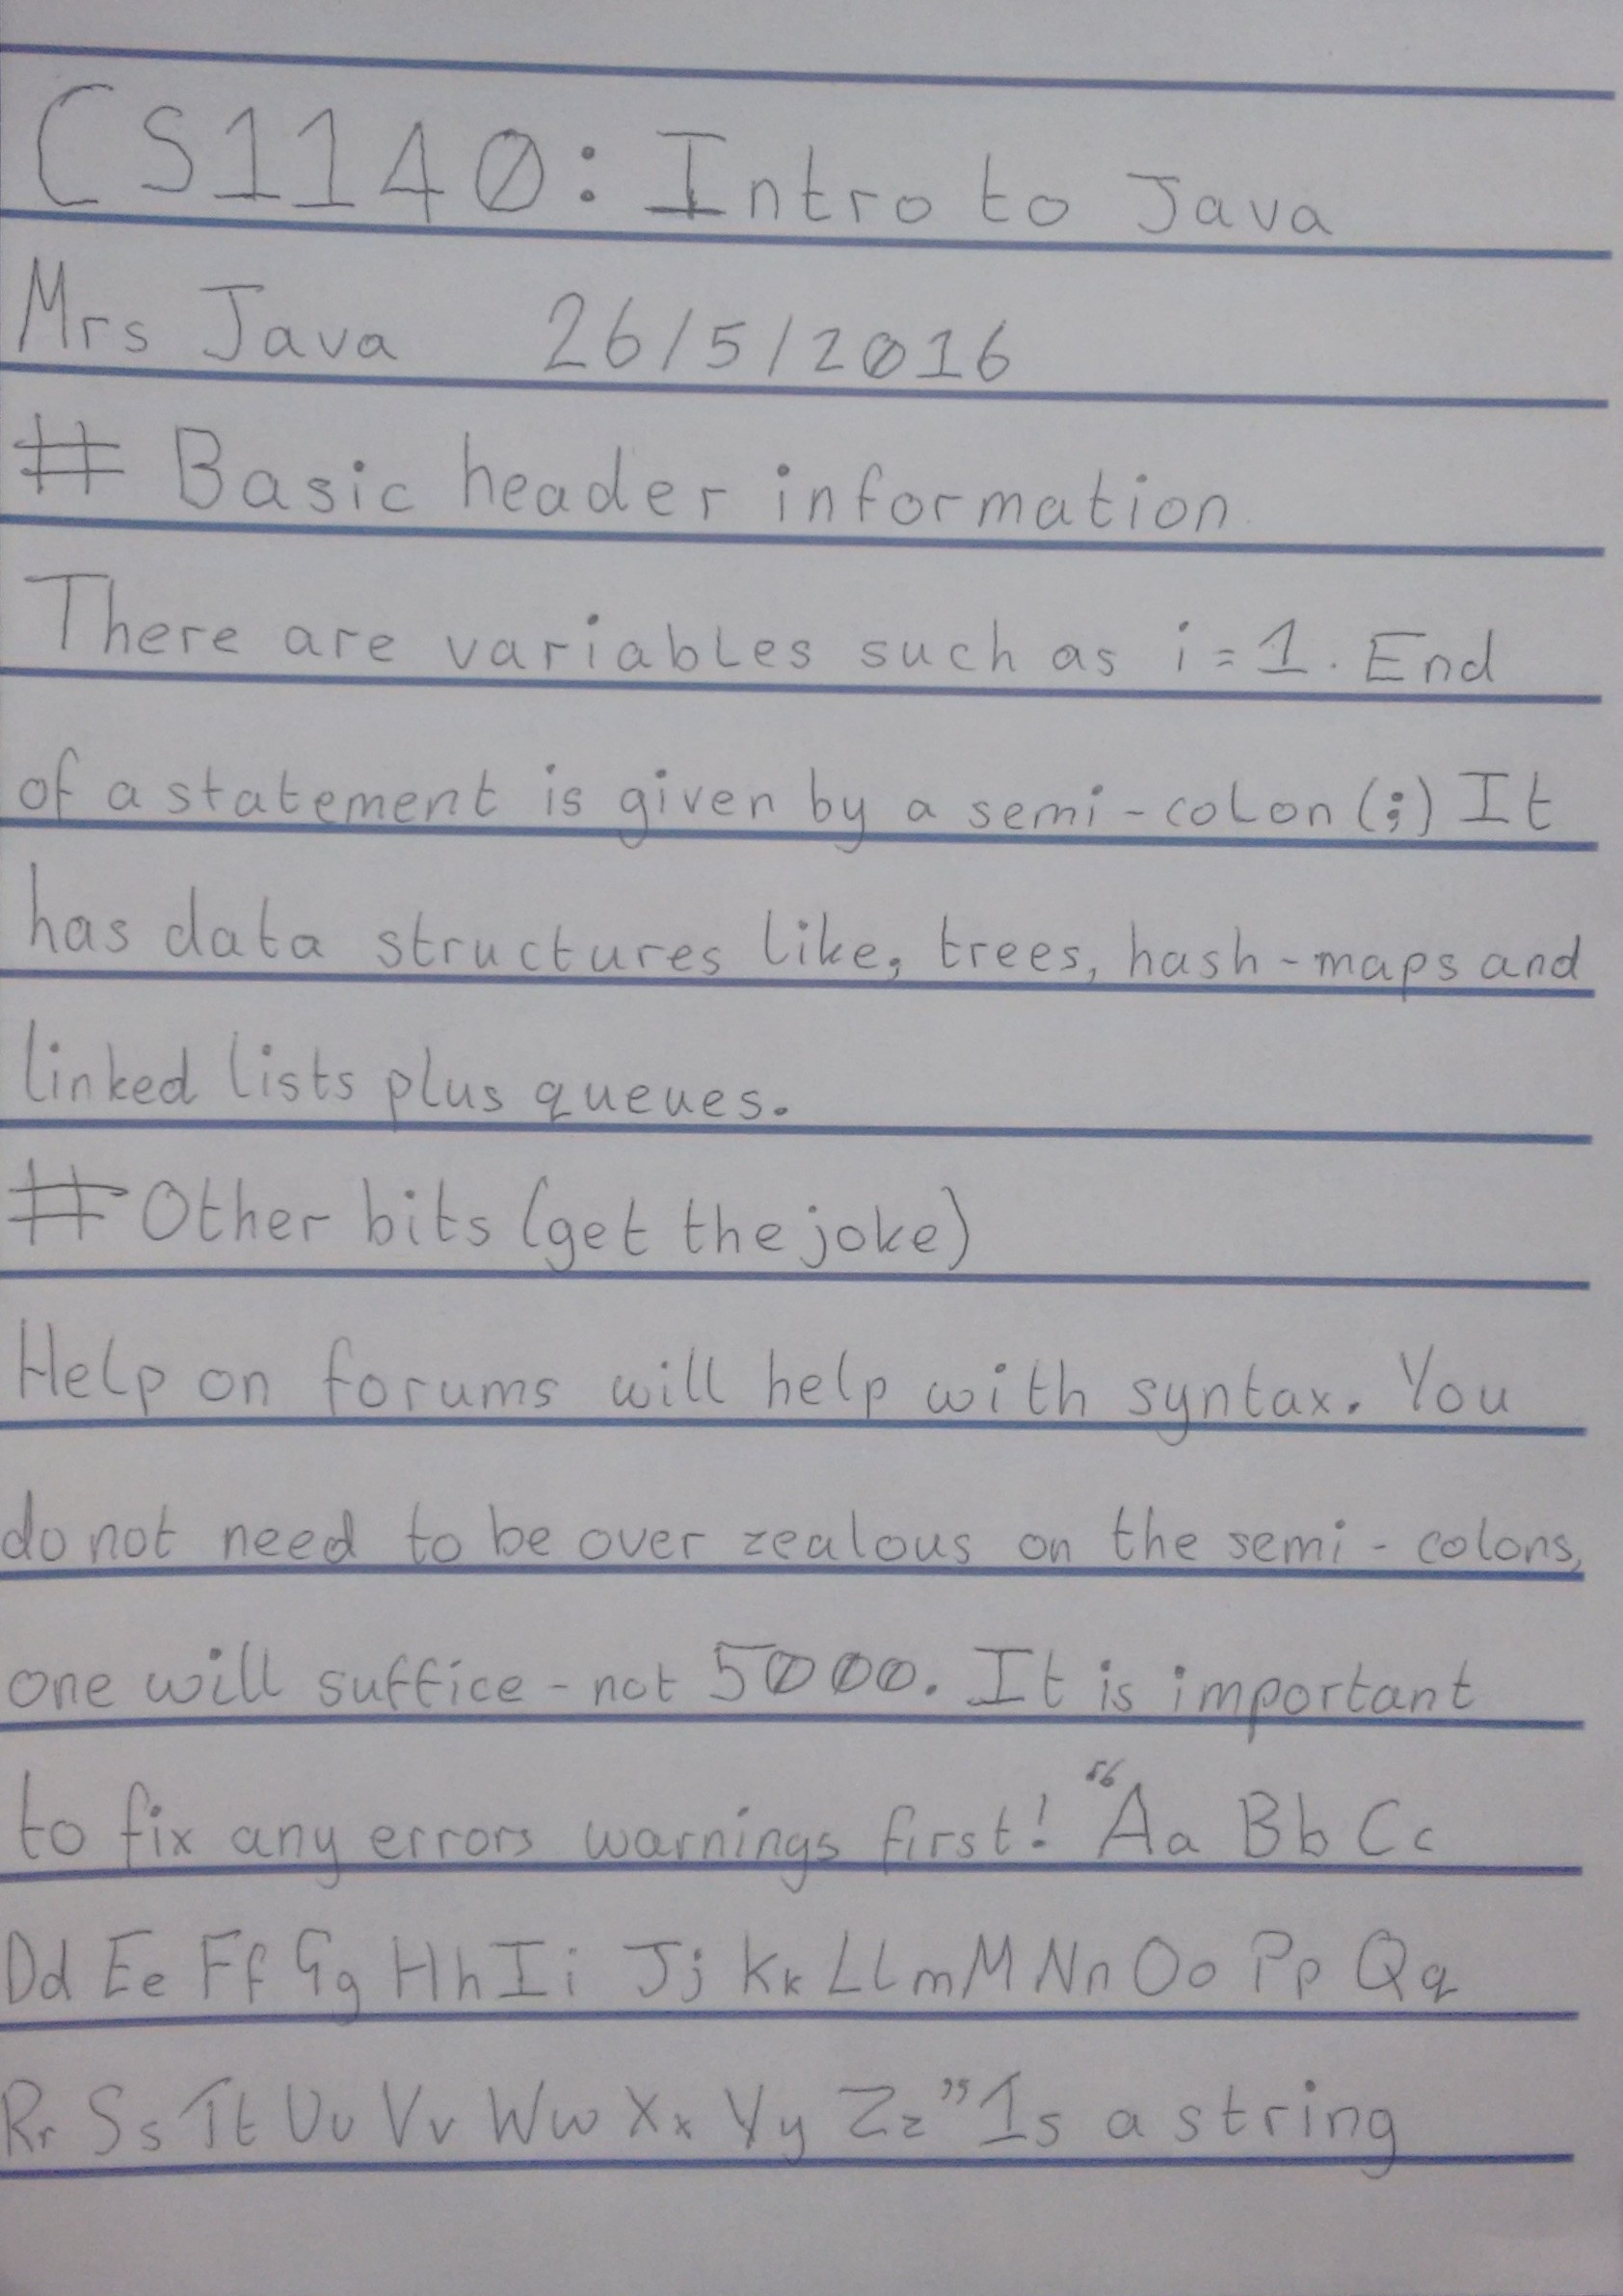 CS1140: Intro to Java
Mrs Java 26/5/2016
# Basic header information
There are variables such as i=1. End
of a statement is given by a semi-colon(;) It
has data structures like, trees, hash-maps and
linked lists plus queues.
# Other bits (get the joke)
Help on forums will help with syntax. You
do not need to be over zealous on the semi-colons,
one will suffice - not 5000. It is important
to fix any errors warnings first! “Aa Bb Cc
Dd Ee Ff Gg Hh Ii Jj Kk Ll mM Nn Oo Pp Qq
Rr Ss Tt Uu Vv Ww Xx Yy Zz” Is a string